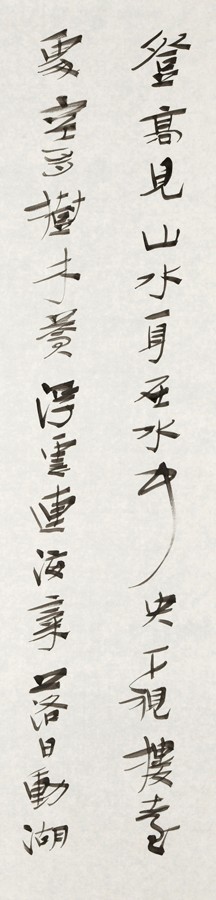 登高見山水身在水中央下視樓臺
處空多樹木黃浮雲連海氣落日動湖